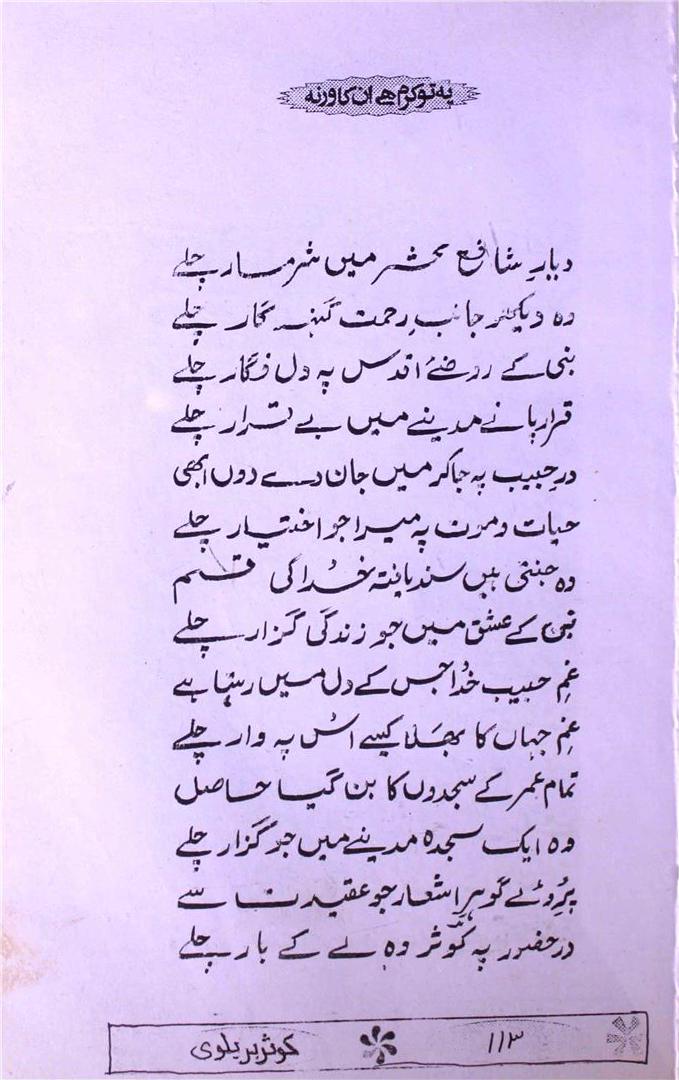 یہ تو کرم ہے ان کا ورنہ
دیارِ شافعِ محشر میں شرمسار چلے
وہ دیکھئے جانبِ رحمت گنہہ گار چلے
نبی کے روضۓ اقدس پہ دل فگار چلے
قرار پانے مدینے میں بے قرار چلے
درِ حبیب پہ جا کر میں جان دے دوں ابھی
حیات و موت پہ میرا جو اختیار چلے
وہ جنتی ہیں سند یافتہ خدا کی قسم
نبیؐ کے عشق میں جو زندگی گزار چلے
غمِ حبیب خُدا جس کے دل میں رہتا ہے
غمِ جہاں کا بھلا کیسے اُس پہ وار چلے
تمام عمر کے سجدوں کا بن گیا حاصل
وہ ایک سجدہ مدینے میں جو گزار چلے
پُروئے گوہرِ اشعار جو عقیدت سے
درِ حضور پہ کوثر وہ لے کے ہار چلے
۱۱۳
کوثر بریلوی